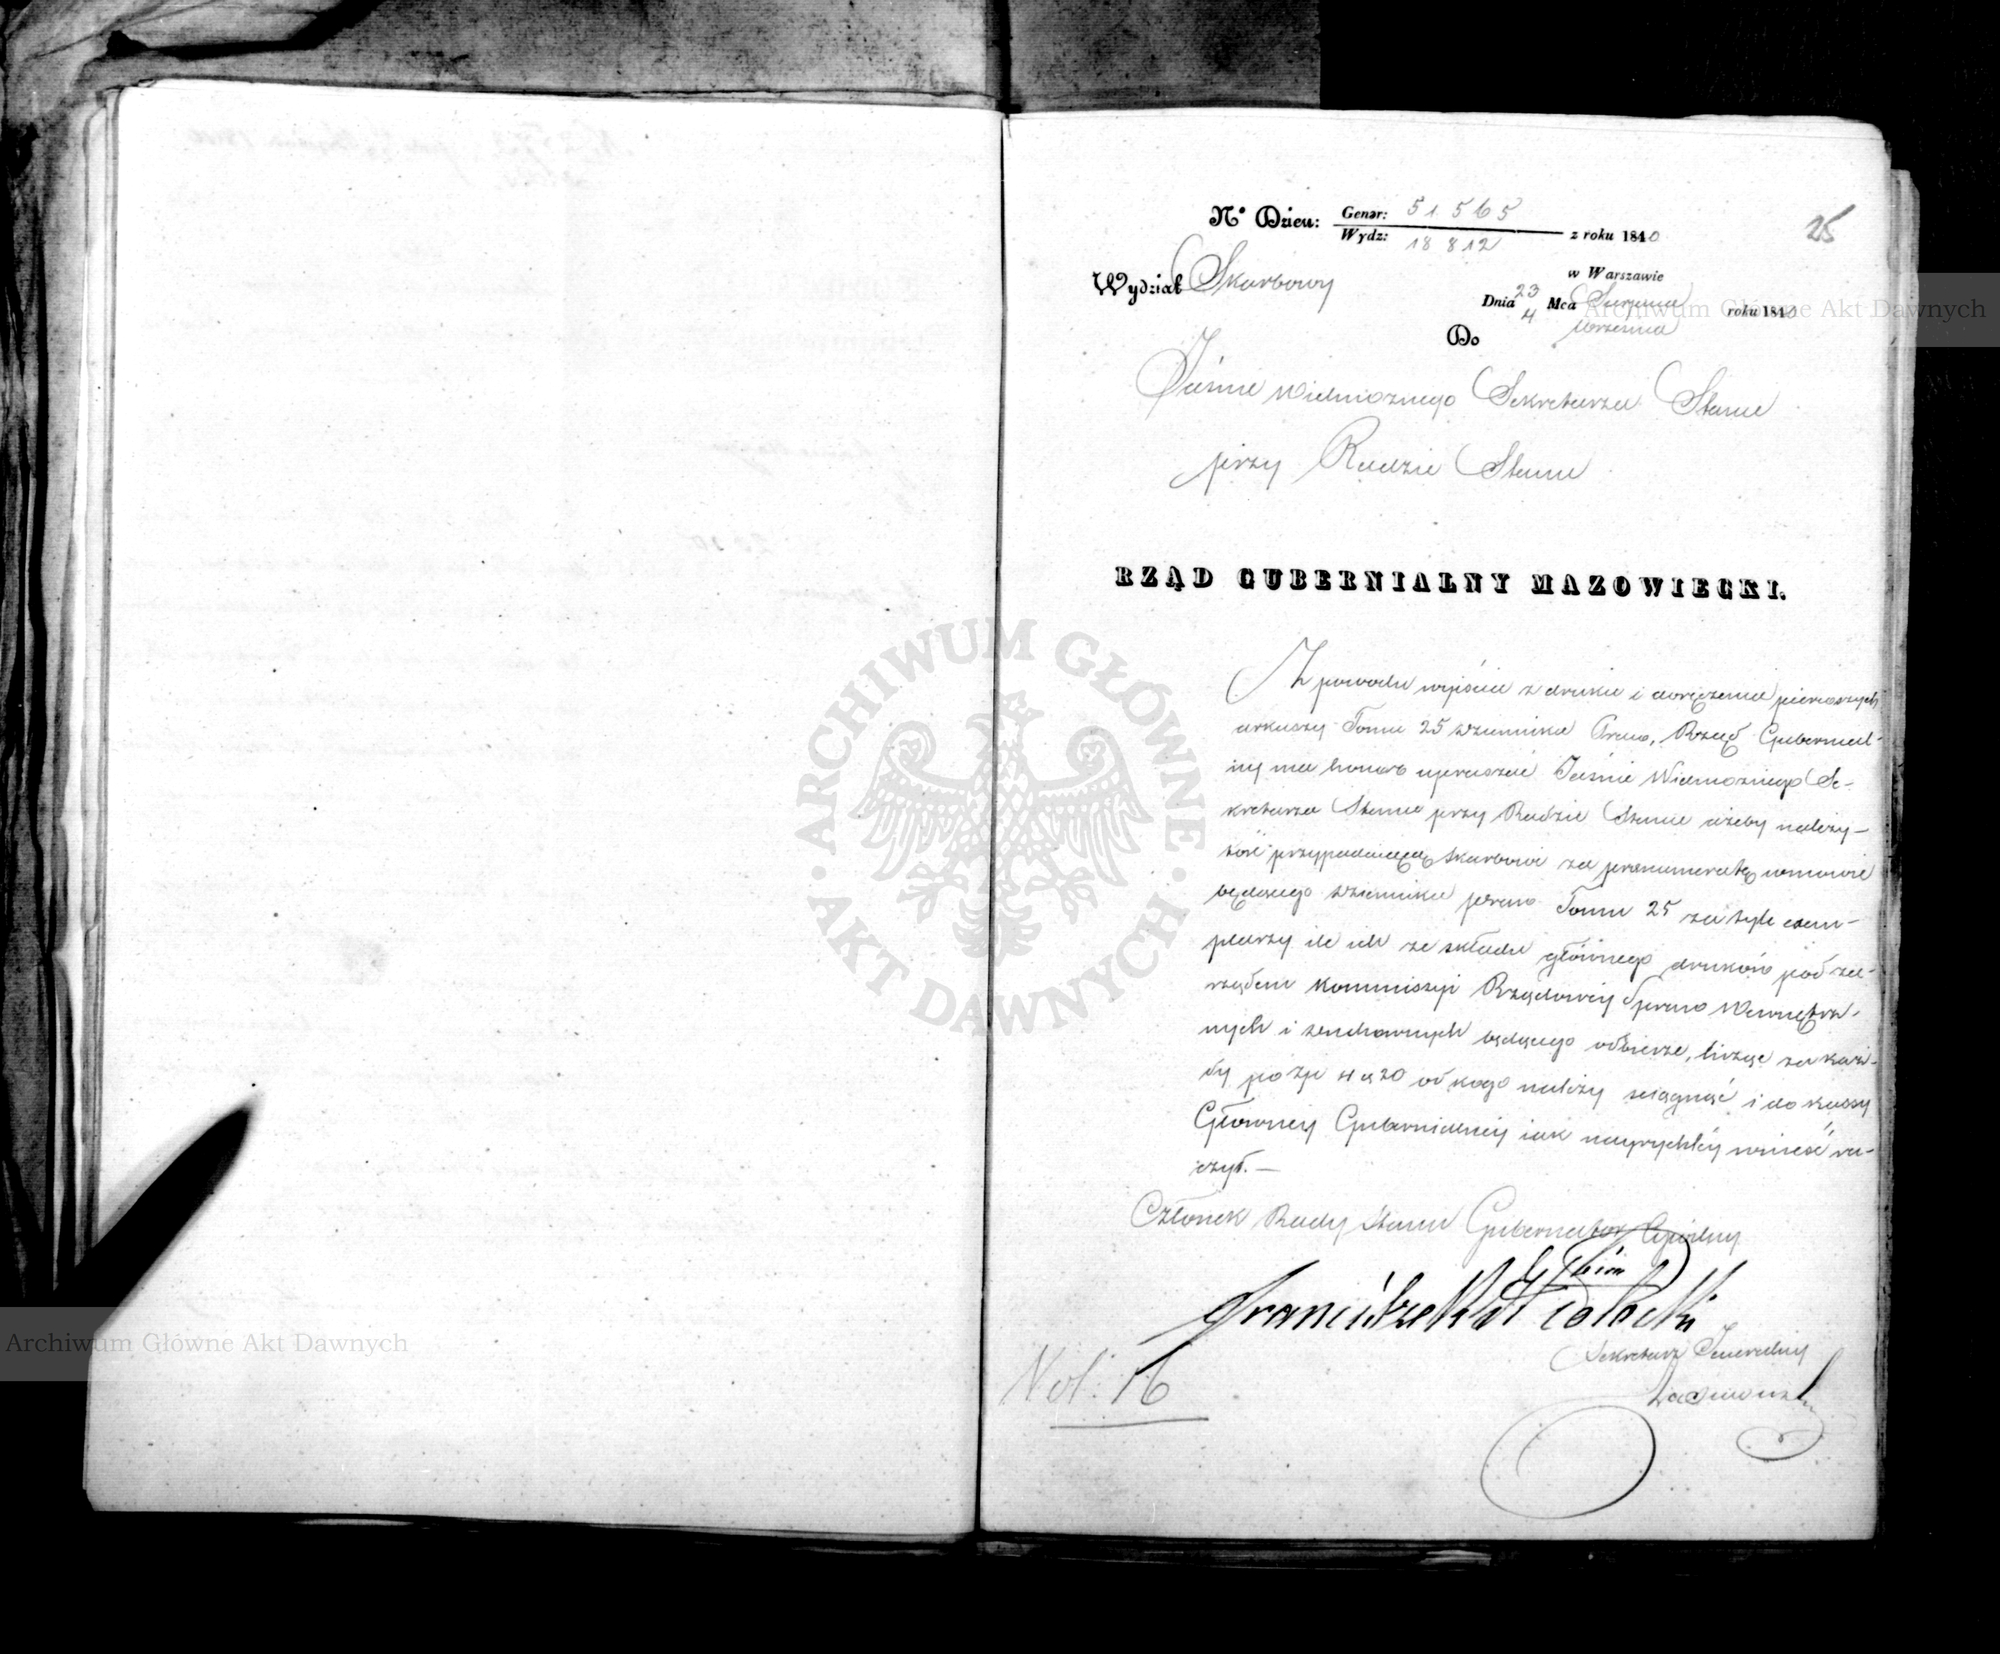 25
Nº Dzien: Gener: 51565
Wydz: 18812 z roku 1840
Wydział Skarbowy
w Warszawie
Dnia 23 Mca Sierpnia
4 Września roku 1840
Do
Jaśnie Wielmożnego Sekretarza Stanu
przy Radzie Stanu
RZĄD GUBERNIALNY MAZOWIECKI.
Z powodu wyjścia z druku i doręczenia pierwszych
arkuszy Tomu 25 Dziennika Praw, Rząd Gubernial-
ny ma honor upraszać Jaśnie Wielmożnego Se-
kretarza Stanu przy Radzie Stanu ażeby należy-
tość przypadaiącą Skarbowi za prenumeratę w mowie
będącego Dziennika praw Tomu 25 za tyle exem-
plarzy ile ich ze składu głównego druków pod za-
rządem Kommissyi Rządowey Spraw Wewnętrz-
nych i Duchownych będącego odbierze, licząc za każ-
dy po zp 4 g 20 od kogo należy ściągnąć i do Kassy
Główney Gubernialney iak nayrychléy wnieść ra-
czył. —
Członek Rady Stanu Gubernator Cywilny
Franciszek Potocki
Sekretarz Jeneralny
Vol: 16
ARCHIWUM GŁÓWNE AKT DAWNYCH
Archiwum Główne Akt Dawnych
Archiwum Główne Akt Dawnych